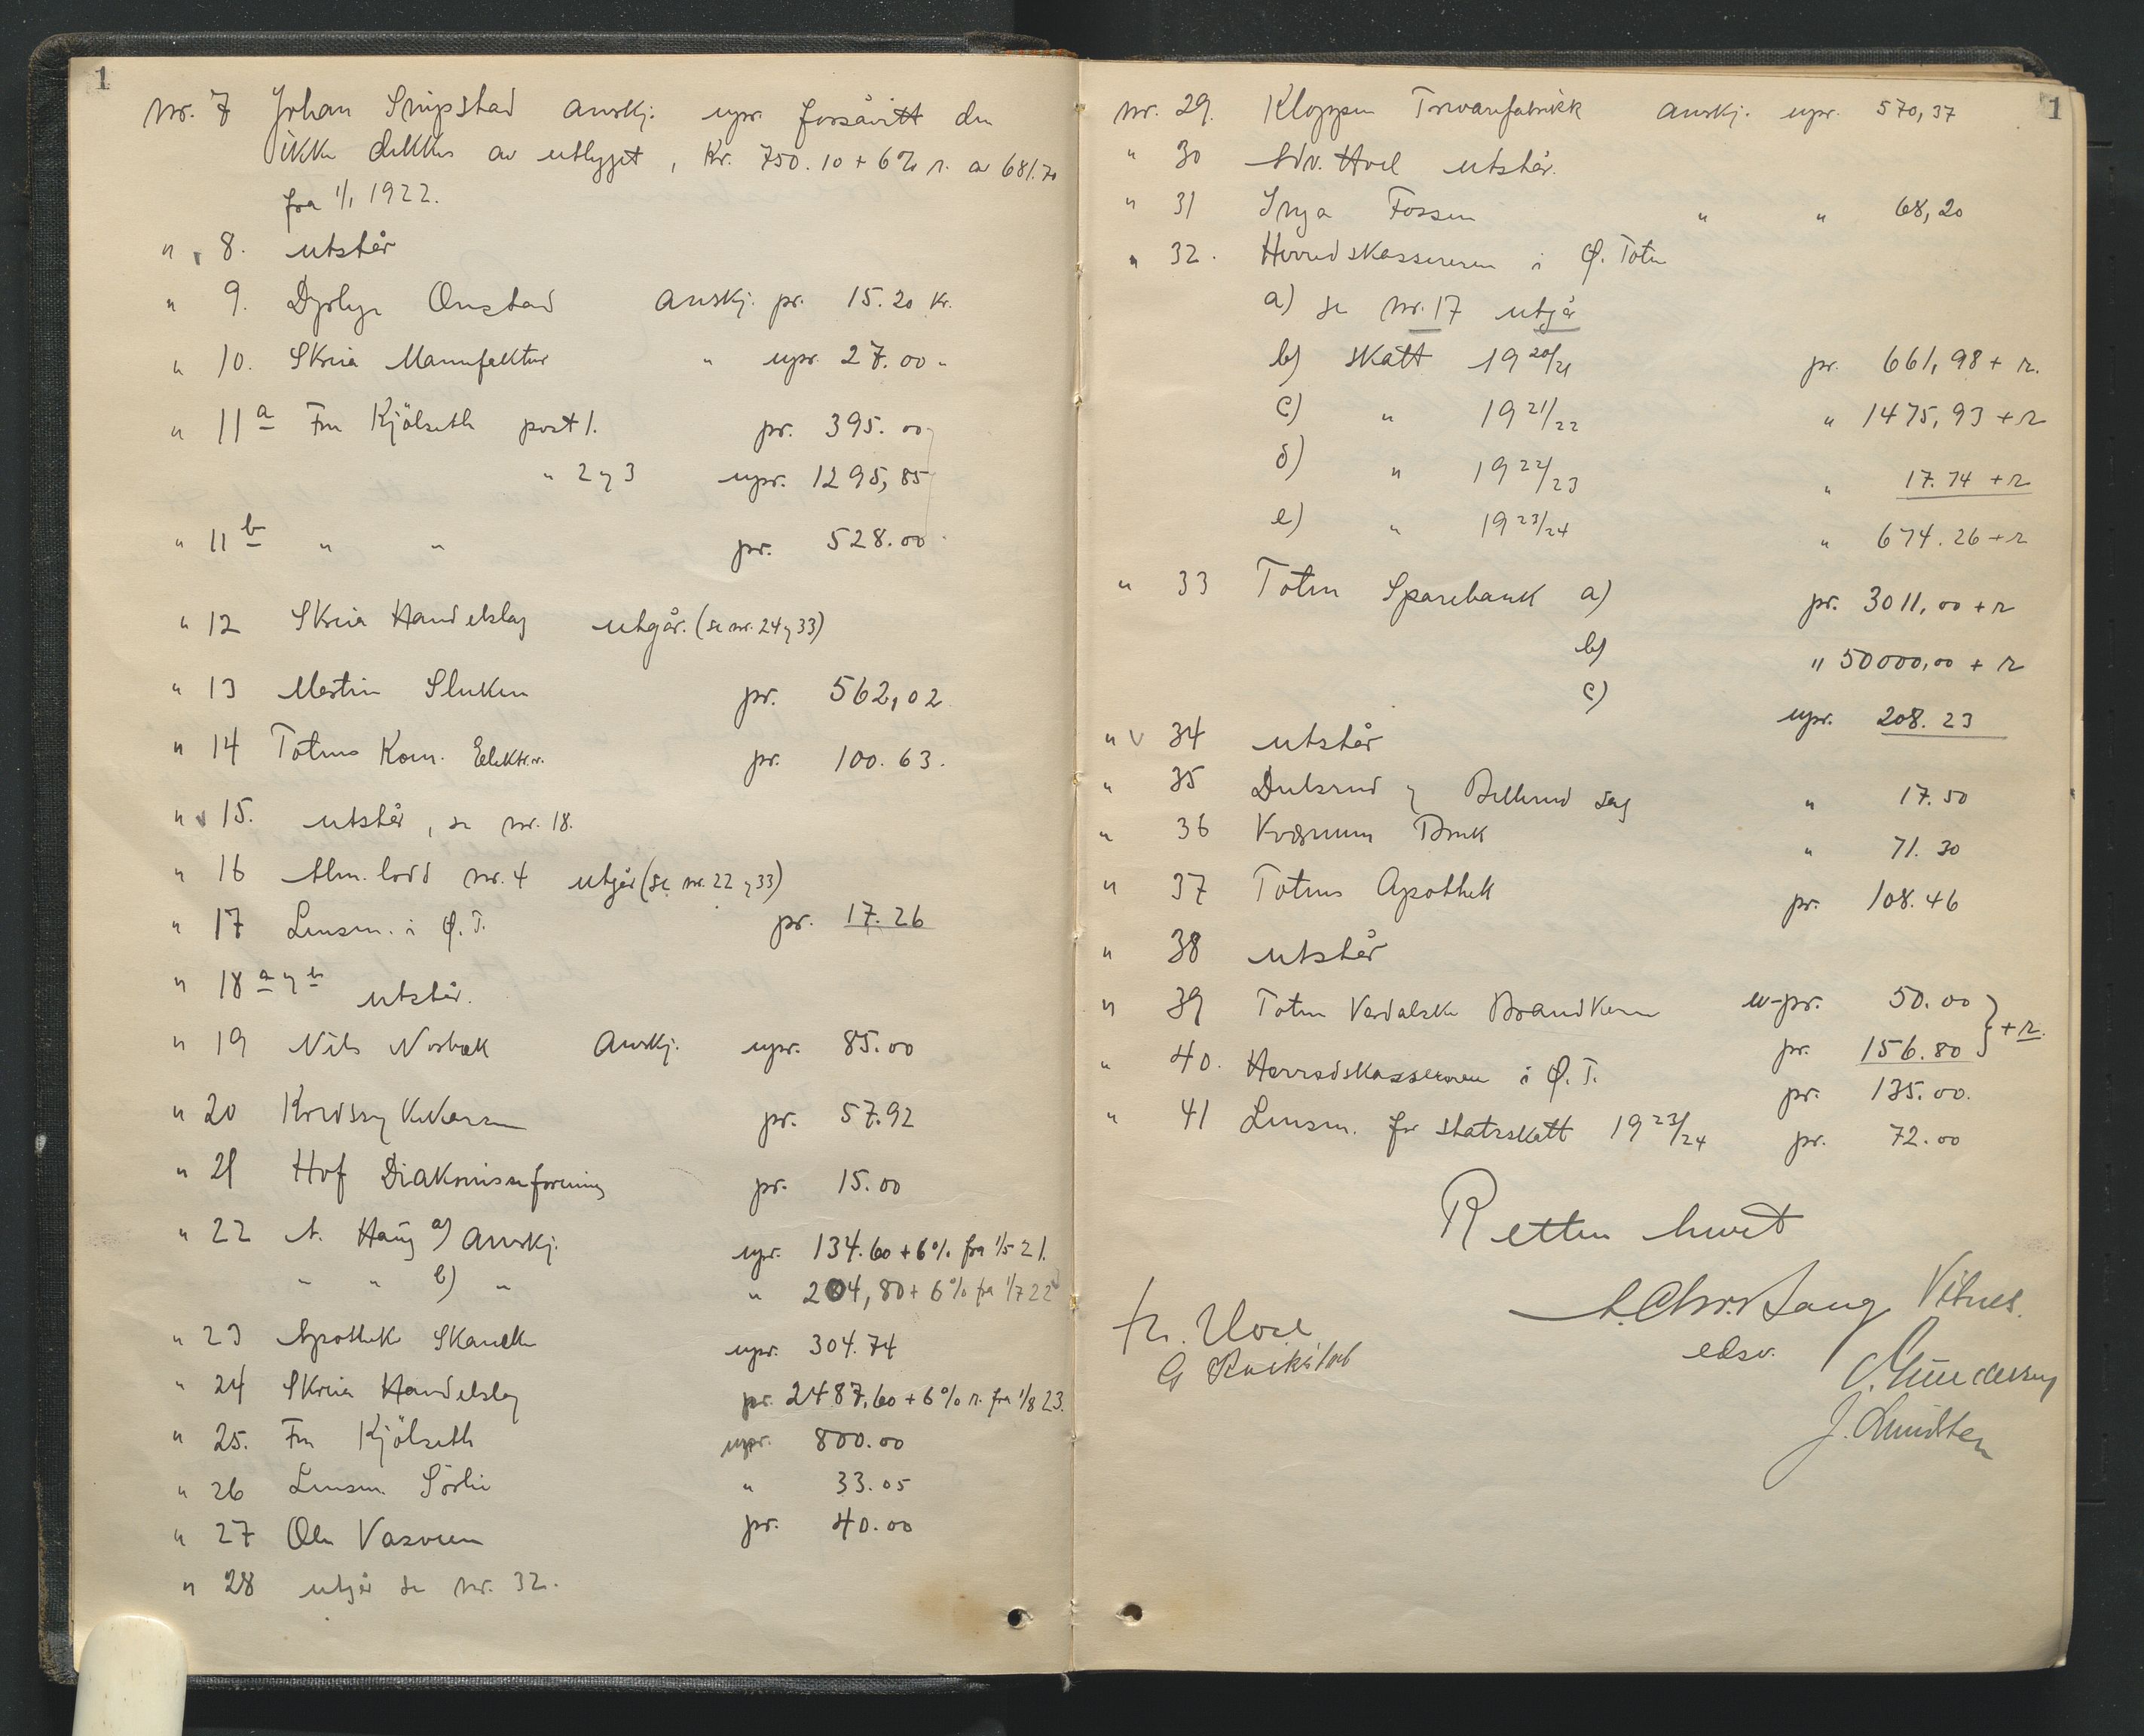 1
Nr. 7 Johan Snipstad anskj. upr. forsåvitt den
ikke dekkes av utlegget, Kr. 750.10 + 6% r. av 681.70
fra 1/1 1922.
" 8. utstår
" 9. Dyrlege Onstad anskj. pr. 15.20 kr.
" 10. Skreia Manufaktur " upr. 27.00 "
" 11 a Fru Kjölseth post 1. pr. 395.00
" 2 og 3 upr. 1295,85
" 11 b " " pr. 528.00
" 12 Skreia Handelslag utgår. (se nr. 24 og 33)
" 13 Martin Sluken pr. 562,02
" 14 Totens Kom. Elektr.v. pr. 100.63.
" 15. utstår, se nr. 18.
" 16 Alm. lodd nr. 4 utgår (se nr. 22 og 33)
" 17 Lensm. i Ø. T. pr. 17.26
" 18 a og b utstår.
" 19 Nils Norbæk Anskj. upr. 85.00
" 20 Kredssykekassen pr. 57.92
" 21 Hof Diakonisseforening pr. 15.00
" 22 A. Haug a) Anskj. upr. 134.60 + 6% fra 1/5 21.
" " b) " " 204,80 + 6% fra 1/7 22
" 23 Apotheker upr. 304.74
" 24 Skreia Handelslag pr. 2487.60 + 6% r. fra 1/8 23.
" 25. Fru Kjölseth upr. 800.00
" 26 Lensm. Sörlie " 33.05
" 27 Ole Vasveen pr. 40.00
" 28 utgår se nr. 32.
1
Nr. 29. Kloppen Trevarefabrikk anskj. upr. 570,37
" 30 Adv. Hoel utstår.
" 31 Inga Fossen " " 68,20
" 32. Herredskassereren i Ø. Toten
a) se nr. 17 utgår
b) skatt 1920/21 pr. 661,98 + r.
c) " 1921/22 " 1475,93 + r
d) " 1922/23 " 17.74 + r
e) " 1923/24 " 674.26 + r
" 33 Toten Sparebank a) pr. 3011,00 + r
b) " 50000,00 + r
c) upr. 208.23
" 34 utstår
" 35 Dulsrud og Billerud Sag " 17.50
" 36 Kværnum Bruk " 71.30
" 37 Totens Apothek pr. 108.46
" 38 utstår
" 39 Toten Vardalske Brandkasse u-pr. 50.00
pr. 156.80 } + r.
" 40. Herredskassereren i Ø. T. pr. 135.00.
" 41 Lensm. for statsskatt 1923/24 pr. 72.00
Retten hevet
A. Chr. Haug Vitnes.
Fr. Hoel
edsv.
J.